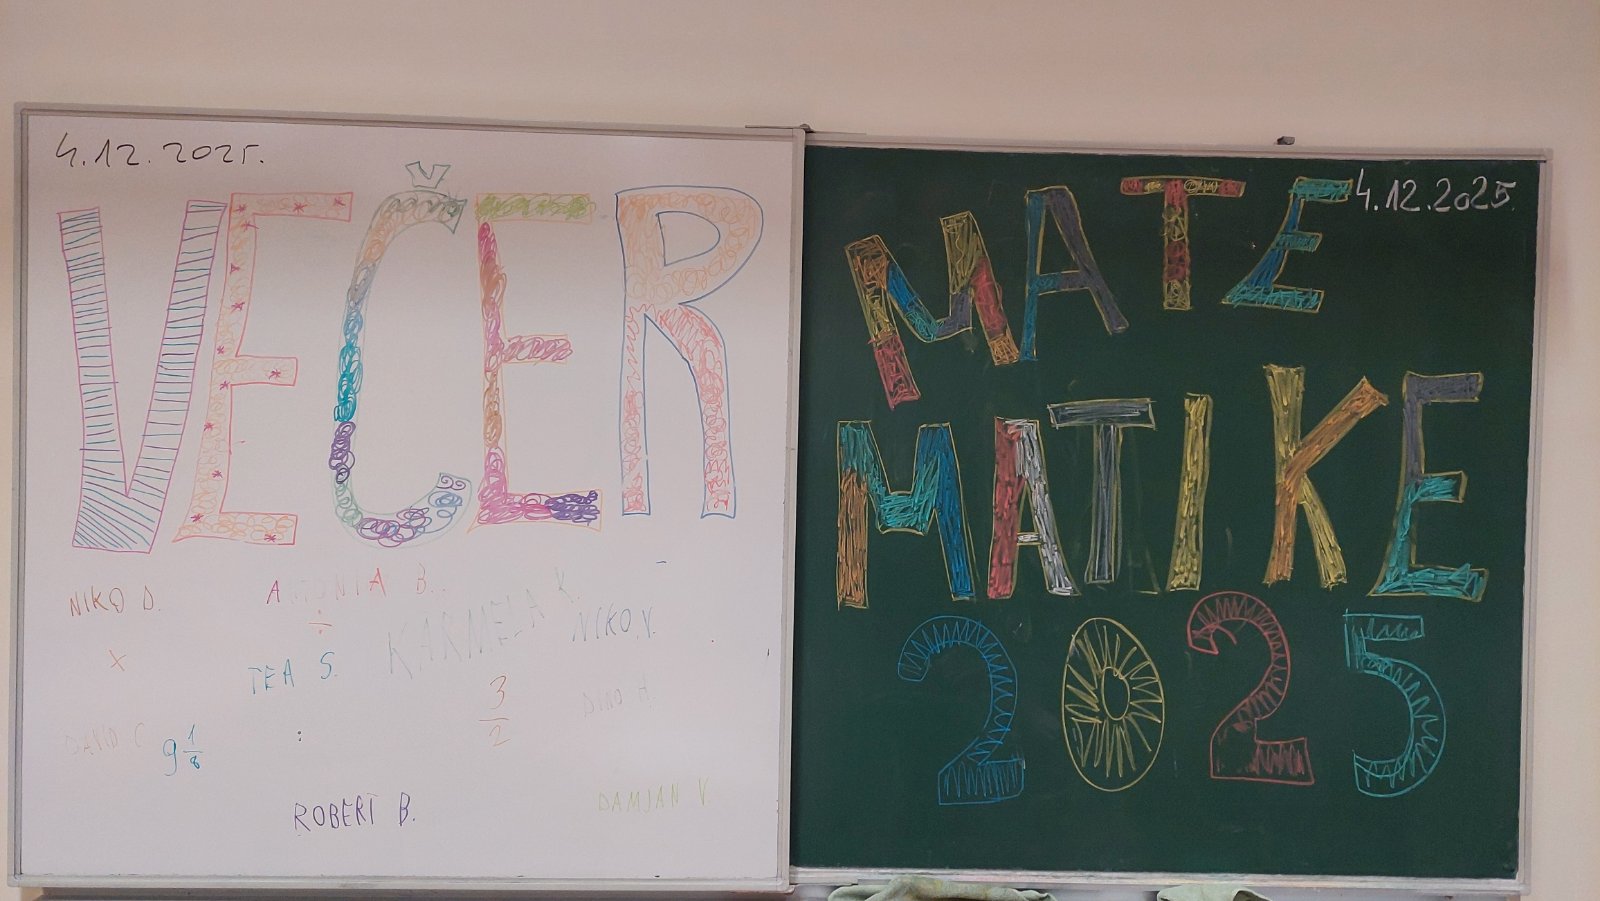 4.12.2025.
VEČER
NIKO D.
ANTONIA B.
KARMELA K.
NIKO V.
÷
x
TEA S.
3
2
DINO H.
DAVID C
9 1/8
:
ROBERT B.
DAMJAN V.
4.12.2025.
MATE
MATIKE
2025